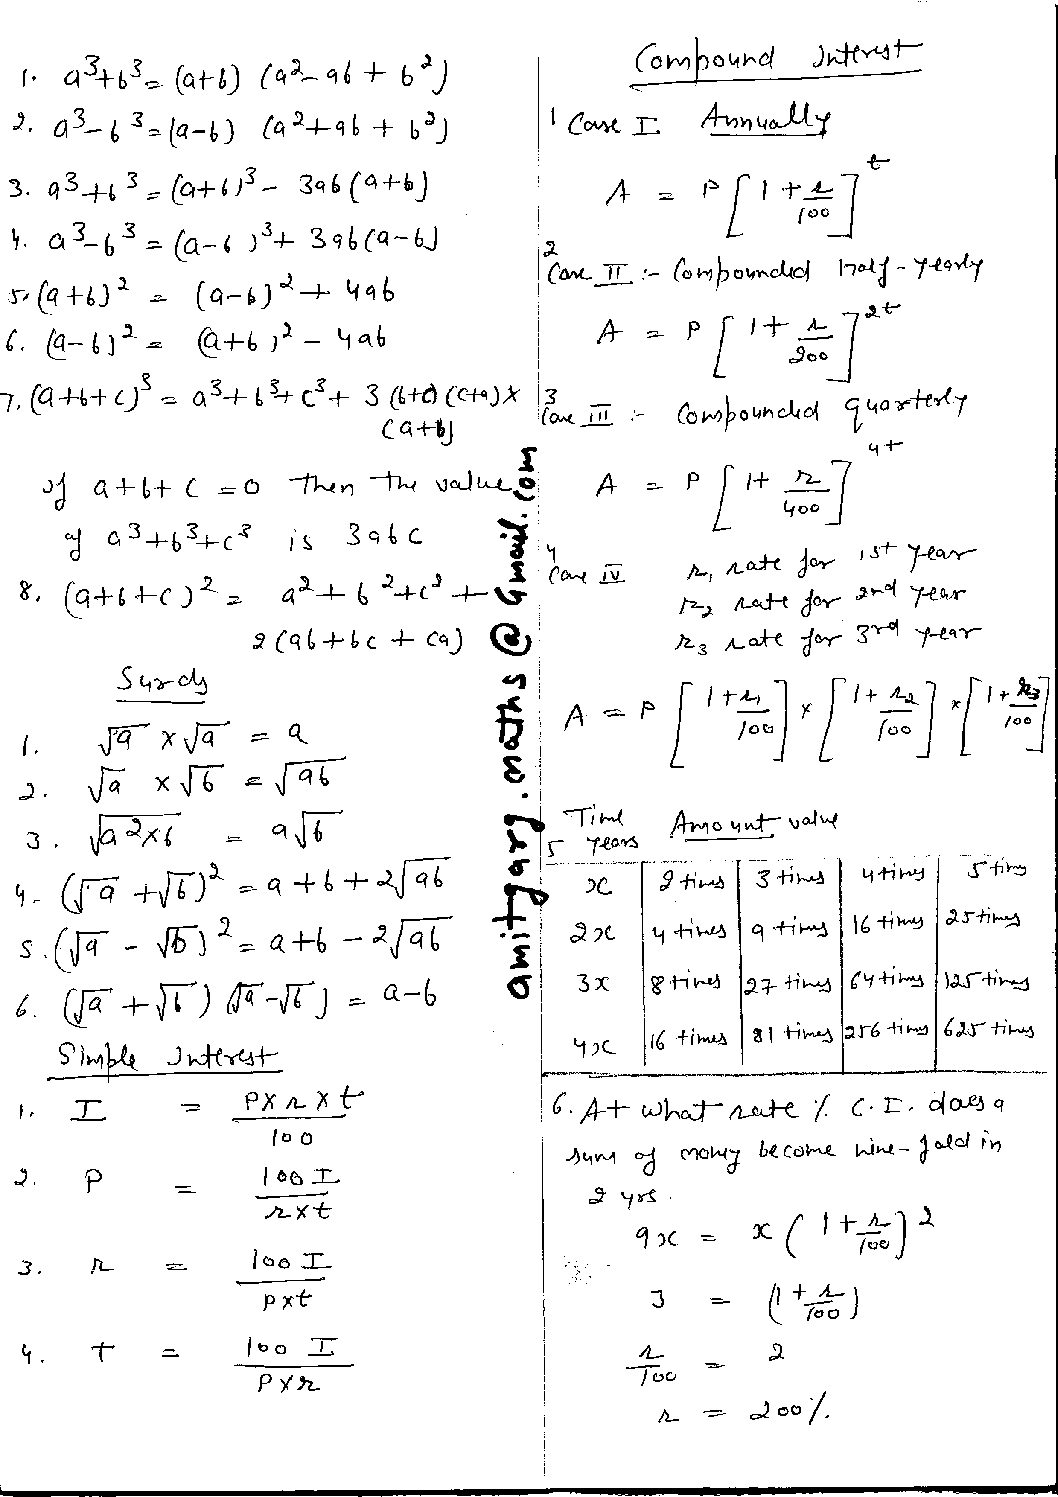 1. a³+b³ = (a+b) (a²-ab+b²)
2. a³-b³ = (a-b) (a²+ab+b²)
3. a³+b³ = (a+b)³ - 3ab(a+b)
4. a³-b³ = (a-b)³ + 3ab(a-b)
5. (a+b)² = (a-b)² + 4ab
6. (a-b)² = (a+b)² - 4ab
7. (a+b+c)³ = a³+b³+c³+ 3(b+c)(c+a)×
(a+b)
if a+b+c =0 then the value
of a³+b³+c³ is 3abc
8. (a+b+c)² = a²+b²+c²+
2(ab+bc+ca)
Surds
1. √a × √a = a
2. √a × √b = √ab
3. √a²×b = a√b
4. (√a + √b)² = a+b+2√ab
5. (√a - √b)² = a+b-2√ab
6. (√a + √b) (√a-√b) = a-b
Simple Interest
1. I = P×r×t/100
2. P = 100 I/r×t
3. r = 100 I/p×t
4. t = 100 I/P×r
amitgarg.maths@gmail.com
Compound Interest
1 Case I Annually
A = P[1+r/100]^t
2
Case II :- Compounded half-yearly
A = P[1+r/200]^2t
3
Case III :- Compounded quarterly
A = P[1+r/400]^4t
4
Case IV r₁ rate for 1st year
r₂ rate for 2nd year
r₃ rate for 3rd year
A = P[1+r₁/100] × [1+r₂/100] × [1+r₃/100]
Time Amount value
5 years
x 2 times 3 times 4 times 5 times
2x 4 times 9 times 16 times 25 times
3x 8 times 27 times 64 times 125 times
4x 16 times 81 times 256 times 625 times
6. At what rate % C.I. does a
sum of money become nine-fold in
2 yrs.
9x = x(1+r/100)²
3 = (1+r/100)
r/100 = 2
r = 200%.